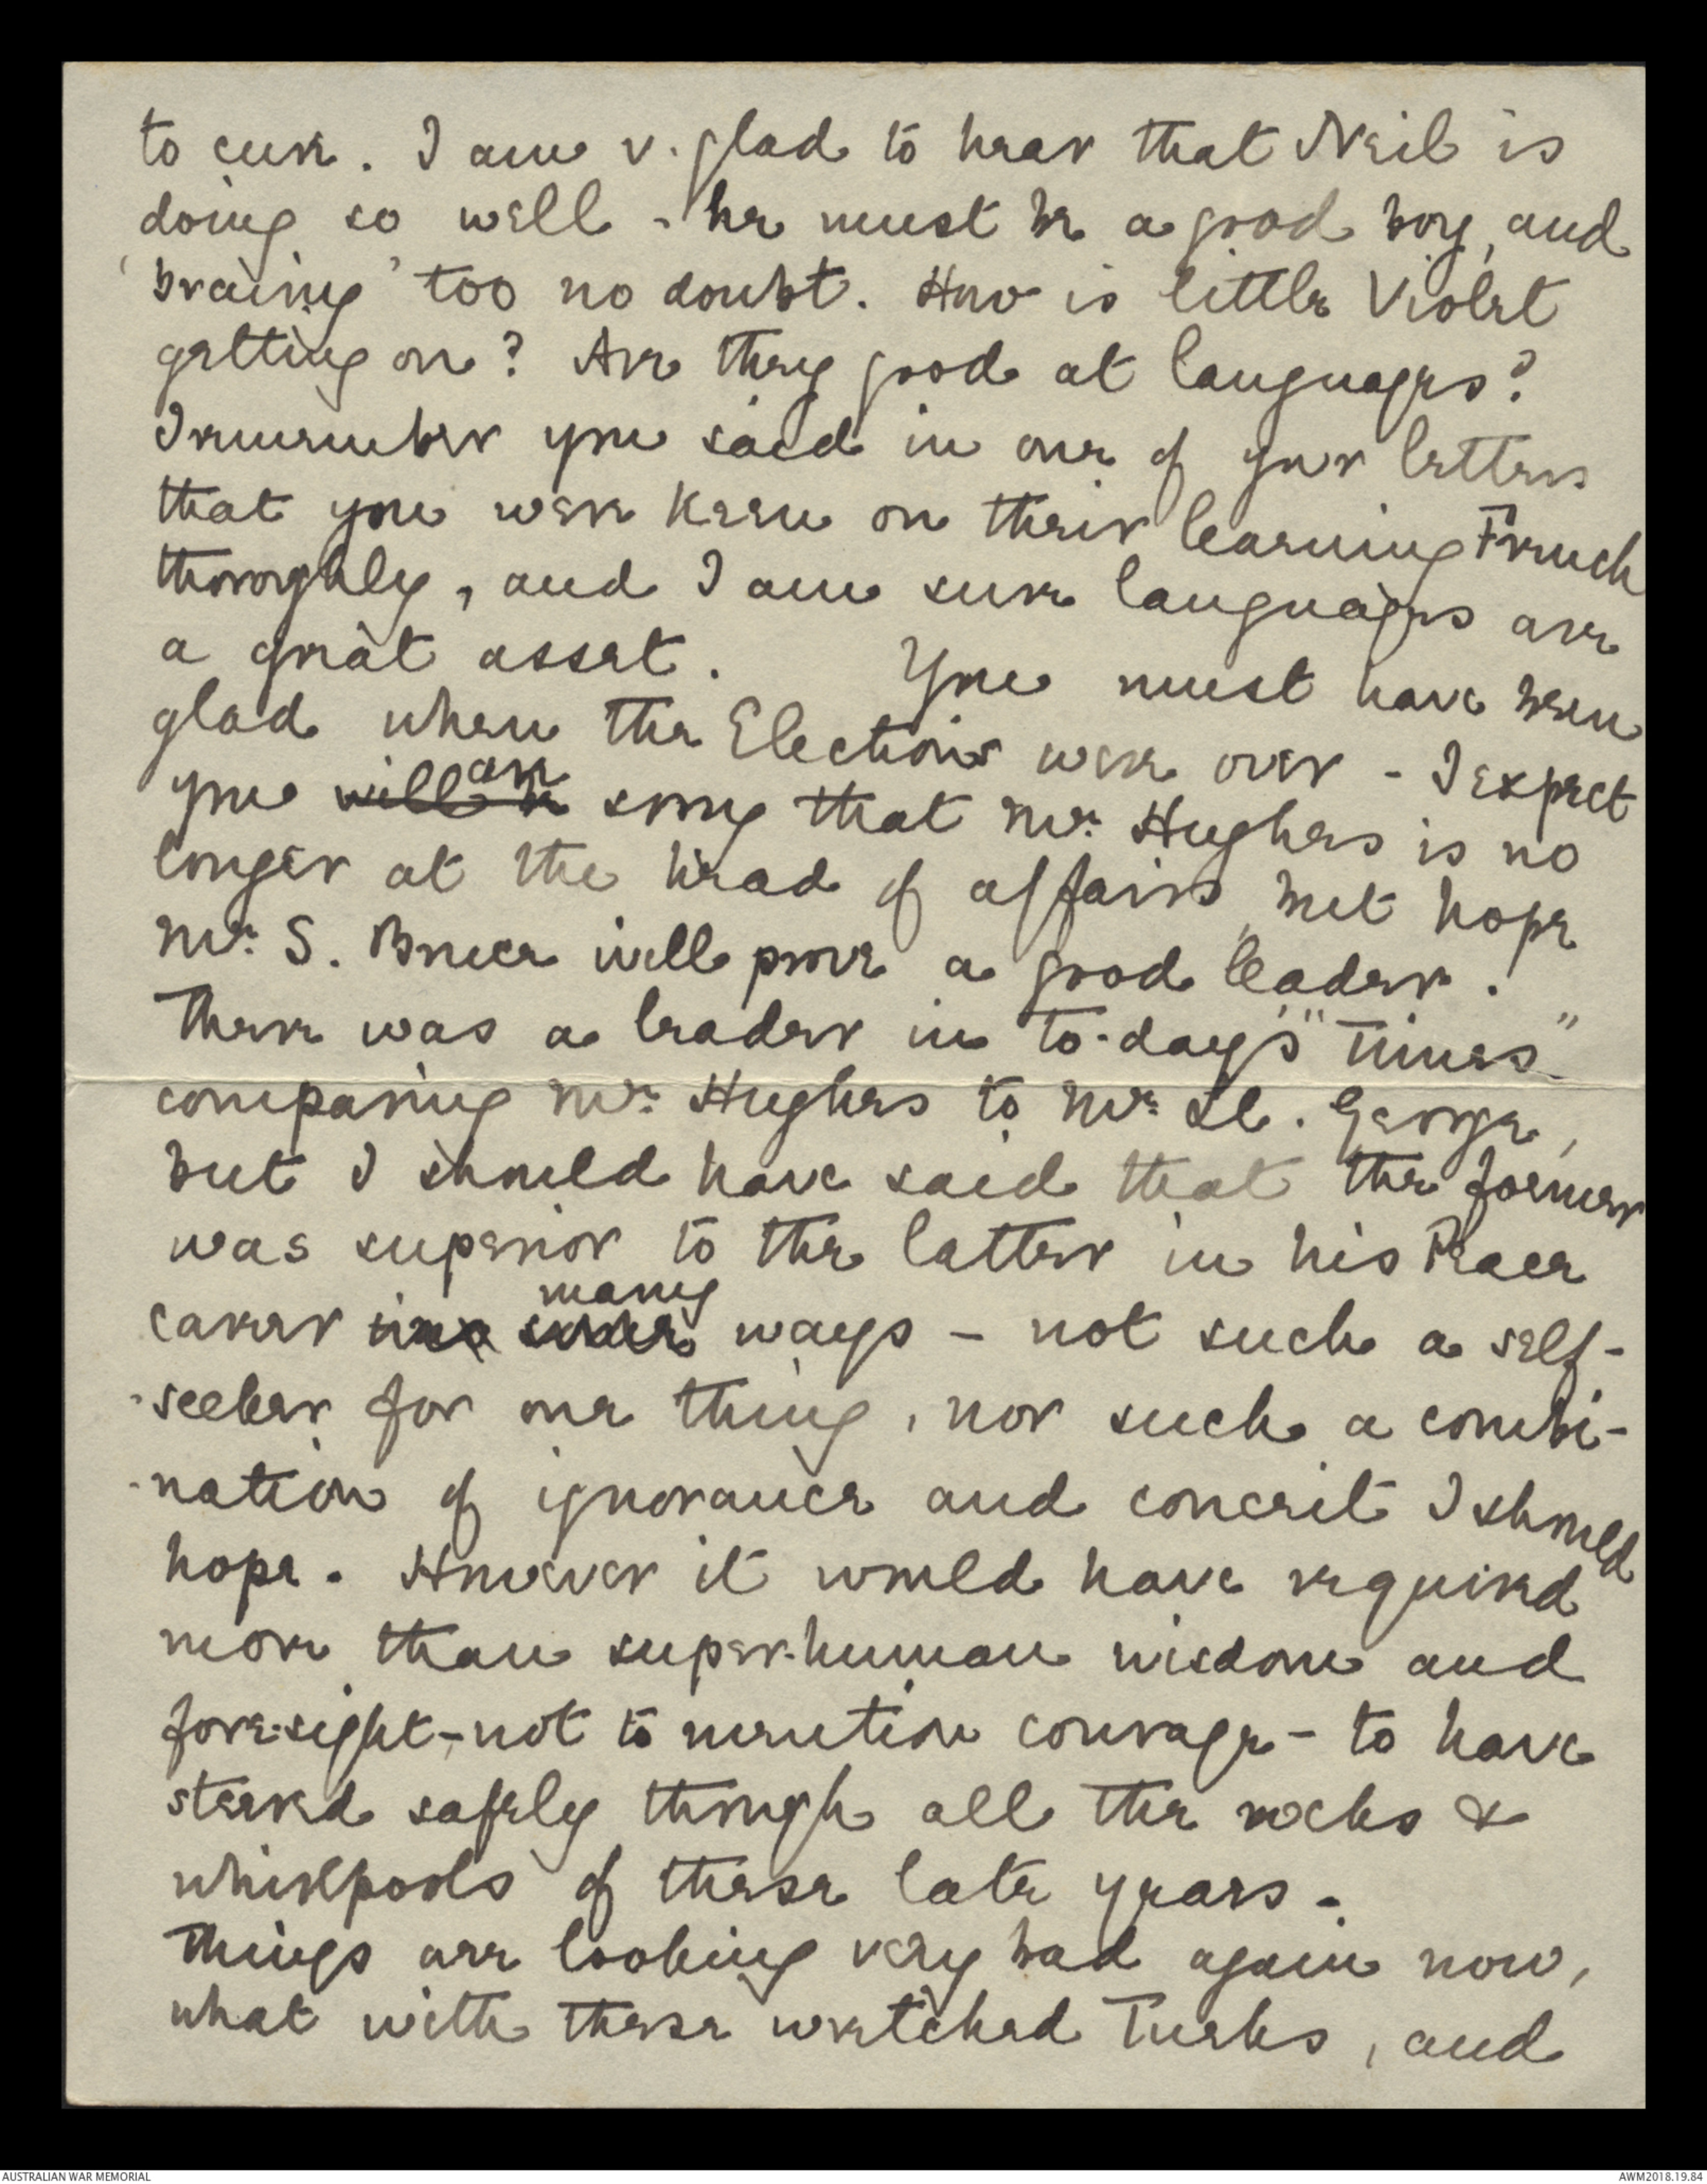 to cure. I am v. glad to hear that Neil is
doing so well - he must be a good boy, and
'brainy' too no doubt. How is little Violet
getting on? Are they good at languages?
I remember you said in one of your letters
that you were keen on their learning French
thoroughly, and I am sure languages are
a great asset. You must have been
glad when the Elections were over - I expect
you will be are sorry that Mr. Hughes is no
longer at the head of affairs, but hope
Mr. S. Bruce will prove a good leader.
There was a leader in to-day's "Times"
comparing Mr. Hughes to Mr. Ll. George,
but I should have said that the former
was superior to the latter in his Peace
career in some many ways - not such a self-
-seeker for one thing, nor such a combi-
-nation of ignorance and conceit I should
hope. However it would have required
more than super-human wisdom and
fore-sight - not to mention courage - to have
steered safely through all the rocks &
whirlpools of these late years.
Things are looking very bad again now,
what with these wretched Turks, and
AUSTRALIAN WAR MEMORIAL
AWM2018.19.84